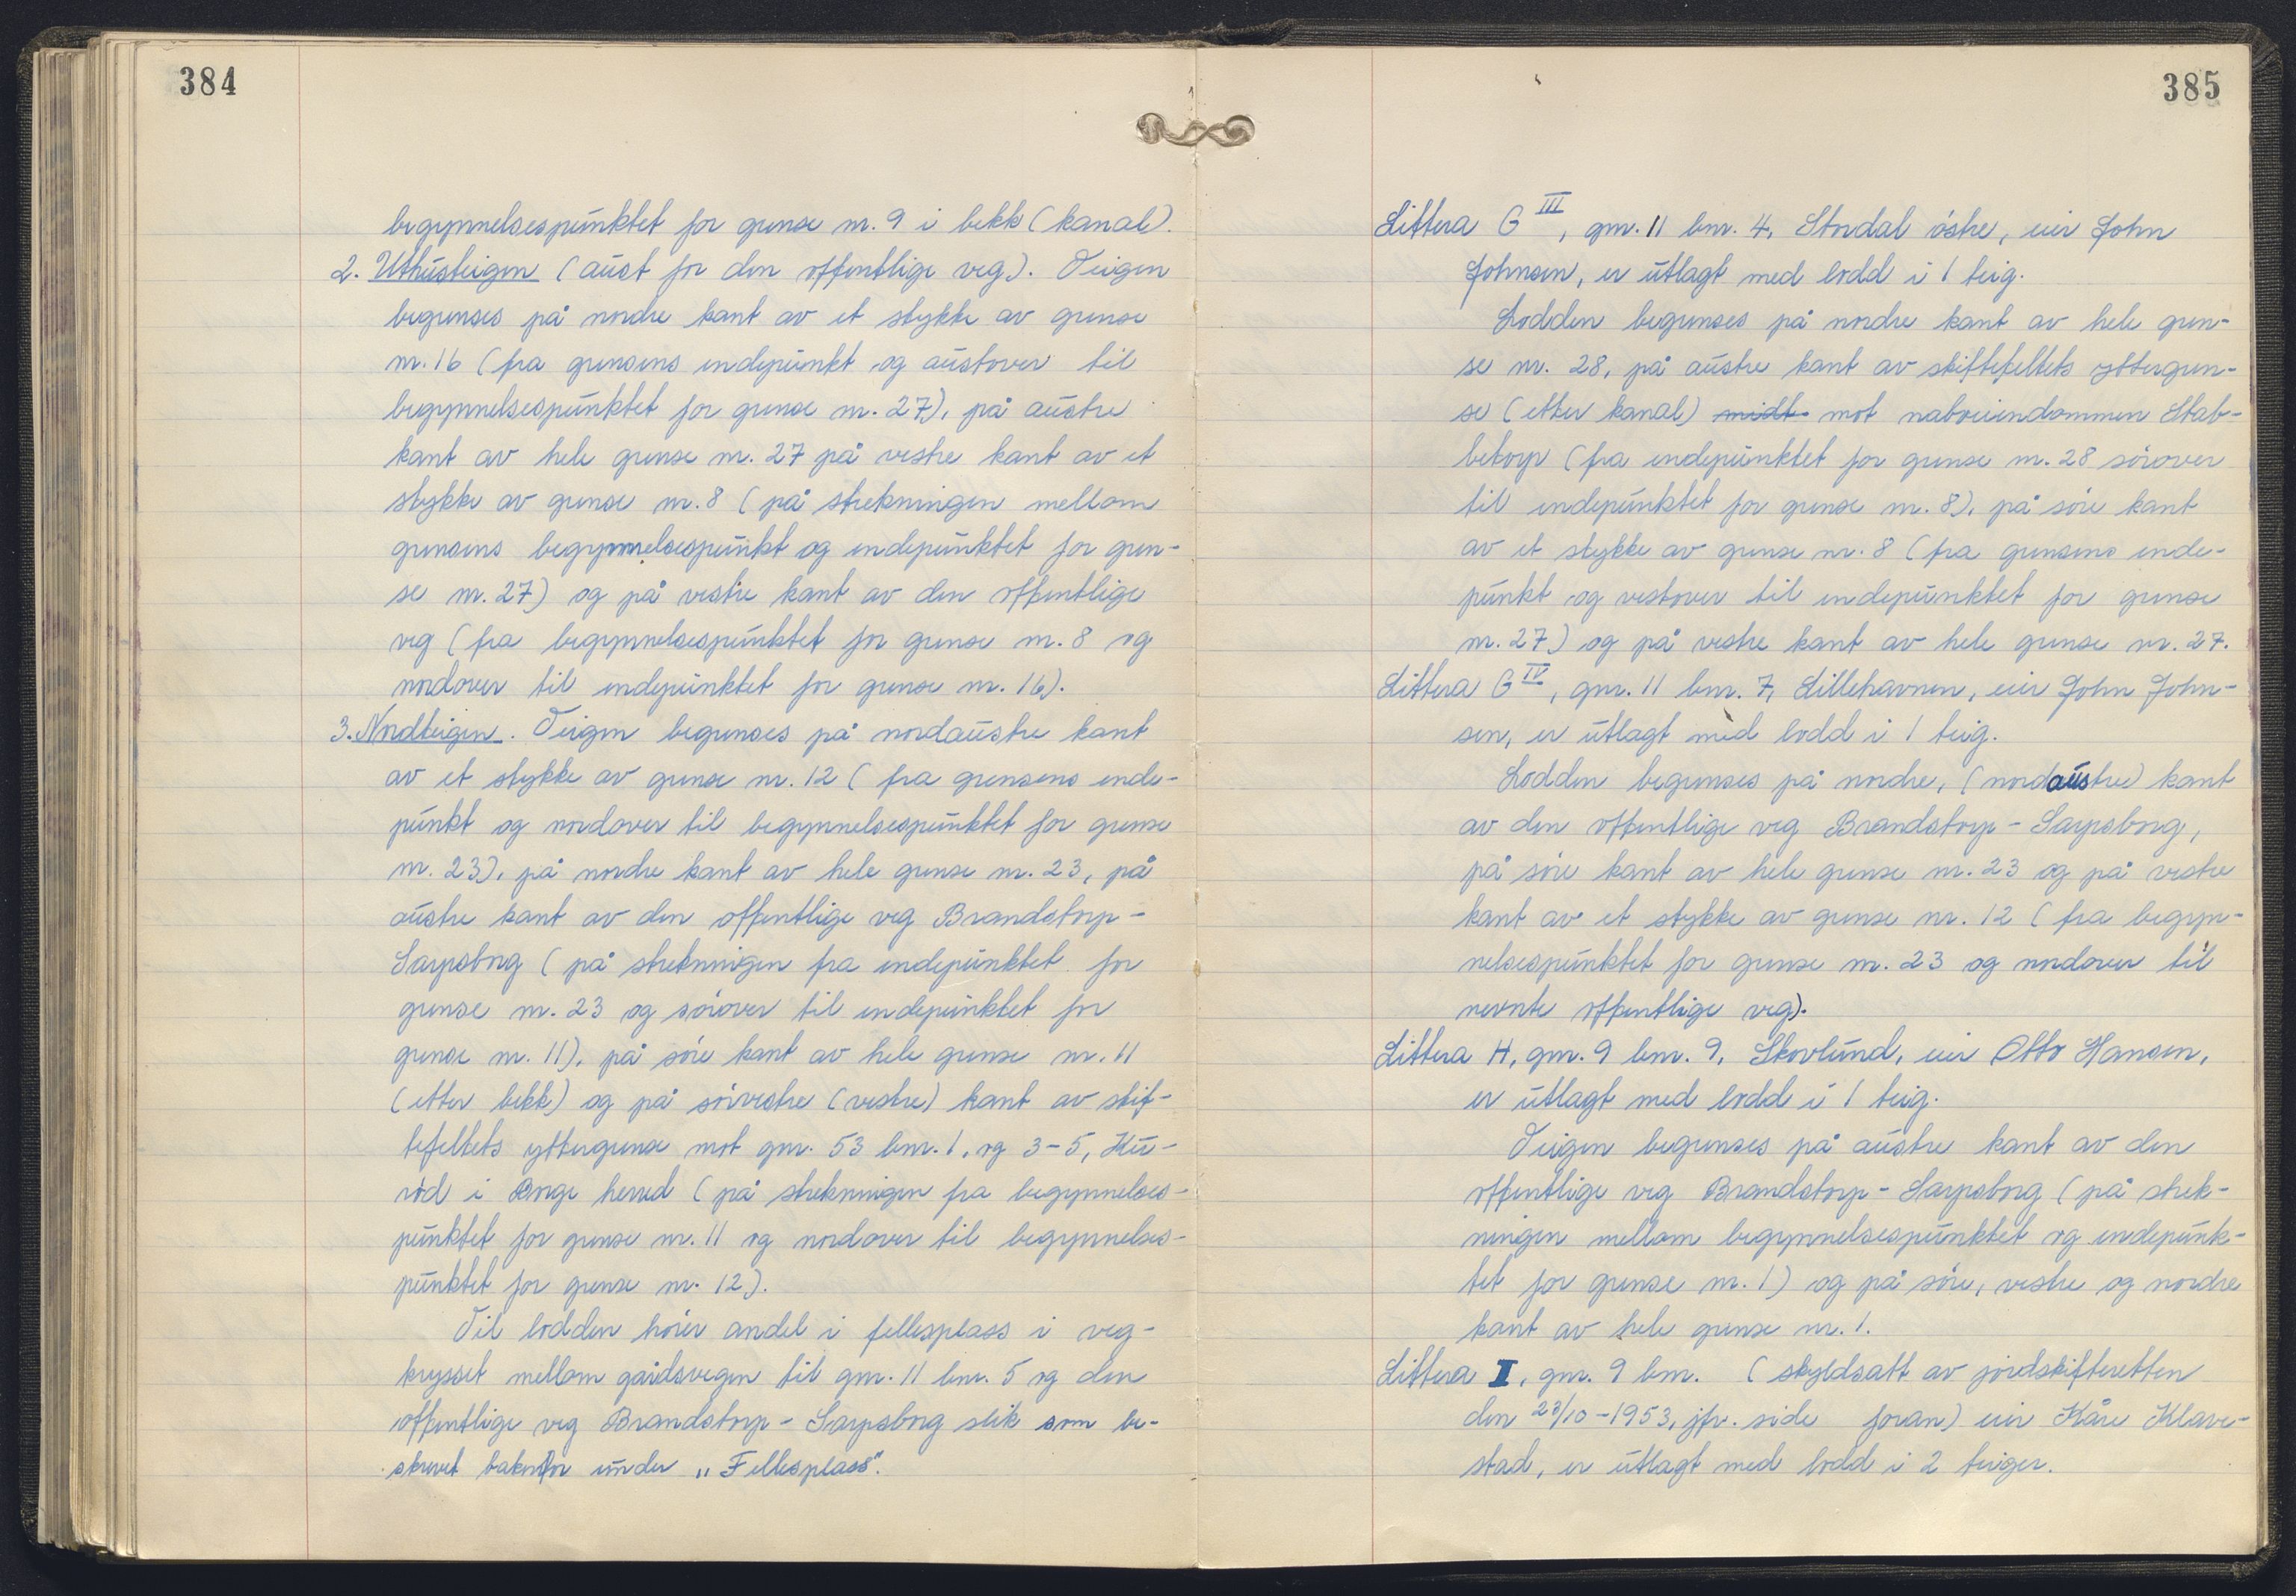 384
begynnelsespunktet for grense nr. 9 i bekk (kanal).
2. Uthusteigen (aust for den offentlige veg). Teigen
begrenses på nordre kant av et stykke av grense
nr. 16 (fra grensens endepunkt og austover til
begynnelsespunktet for grense nr. 27), på austre
kant av hele grense nr. 27 på vestre kant av et
stykke av grense nr. 8 (på strekningen mellom
grensens begynnelsespunkt og endepunktet for gren-
se nr. 27) og på vestre kant av den offentlige
veg (fra begynnelsespunktet for grense nr. 8 og
nordover til endepunktet for grense nr. 16).
3. Nordteigen. Teigen begrenses på nordaustre kant
av et stykke av grense nr. 12 (fra grensens ende-
punkt og nordover til begynnelsespunktet for grense
nr. 23), på nordre kant av hele grense nr. 23, på
austre kant av den offentlige veg Brandstorp-
Sarpsborg (på strekningen fra endepunktet for
grense nr. 23 og sörover til endepunktet for
grense nr. 11), på söre kant av hele grense nr. 11
(etter bekk) og på sörvestre (vestre) kant av skif-
tefeltets yttergrense mot gnr. 53 bnr. 1, og 3-5, Ku-
röd i Borge herred (på strekningen fra begynnelses-
punktet for grense nr. 11 og nordover til begynnelses-
punktet for grense nr. 12).
Til lodden hörer andel i fellesplass i veg-
krysset mellom gårdsvegen til gnr. 11 bnr. 5 og den
offentlige veg Brandstorp - Sarpsborg slik som be-
skrevet bakenfor under „Fellesplass".
385
Littera G III, gnr. 11 bnr. 4, Stordal östre, eier John
Johnsen, er utlagt med lodd i 1 teig.
Lodden begrenses på nordre kant av hele gren-
se nr. 28, på austre kant av skiftefeltets yttergren-
se (etter kanal) midt mot naboeiendommen Stab-
betorp (fra endepunktet for grense nr. 28 sörover
til endepunktet for grense nr. 8), på söre kant
av et stykke av grense nr. 8 (fra grensens ende-
punkt og vestover til endepunktet for grense
nr. 27) og på vestre kant av hele grense nr. 27.
Littera G IV, gnr. 11 bnr. 7, Lillehavnen, eier John John-
sen, er utlagt med lodd i 1 teig.
Lodden begrenses på nordre, (nordaustre) kant
av den offentlige veg Brandstorp - Sarpsborg,
på söre kant av hele grense nr. 23 og på vestre
kant av et stykke av grense nr. 12 (fra begyn-
nelsespunktet for grense nr. 23 og nordover til
nevnte offentlige veg).
Littera H, gnr. 9 bnr. 9, Skovlund, eier Otto Hansen,
er utlagt med lodd i 1 teig.
Teigen begrenses på austre kant av den
offentlige veg Brandstorp - Sarpsborg (på strek-
ningen mellom begynnelsespunktet og endepunk-
tet for grense nr. 1) og på söre, vestre og nordre
kant av hele grense nr. 1.
Littera I, gnr. 9 bnr. (skyldsatt av jordskifteretten
den 23/10-1953, jfr. side foran) eier Kåre Klave-
stad, er utlagt med lodd i 2 teiger.